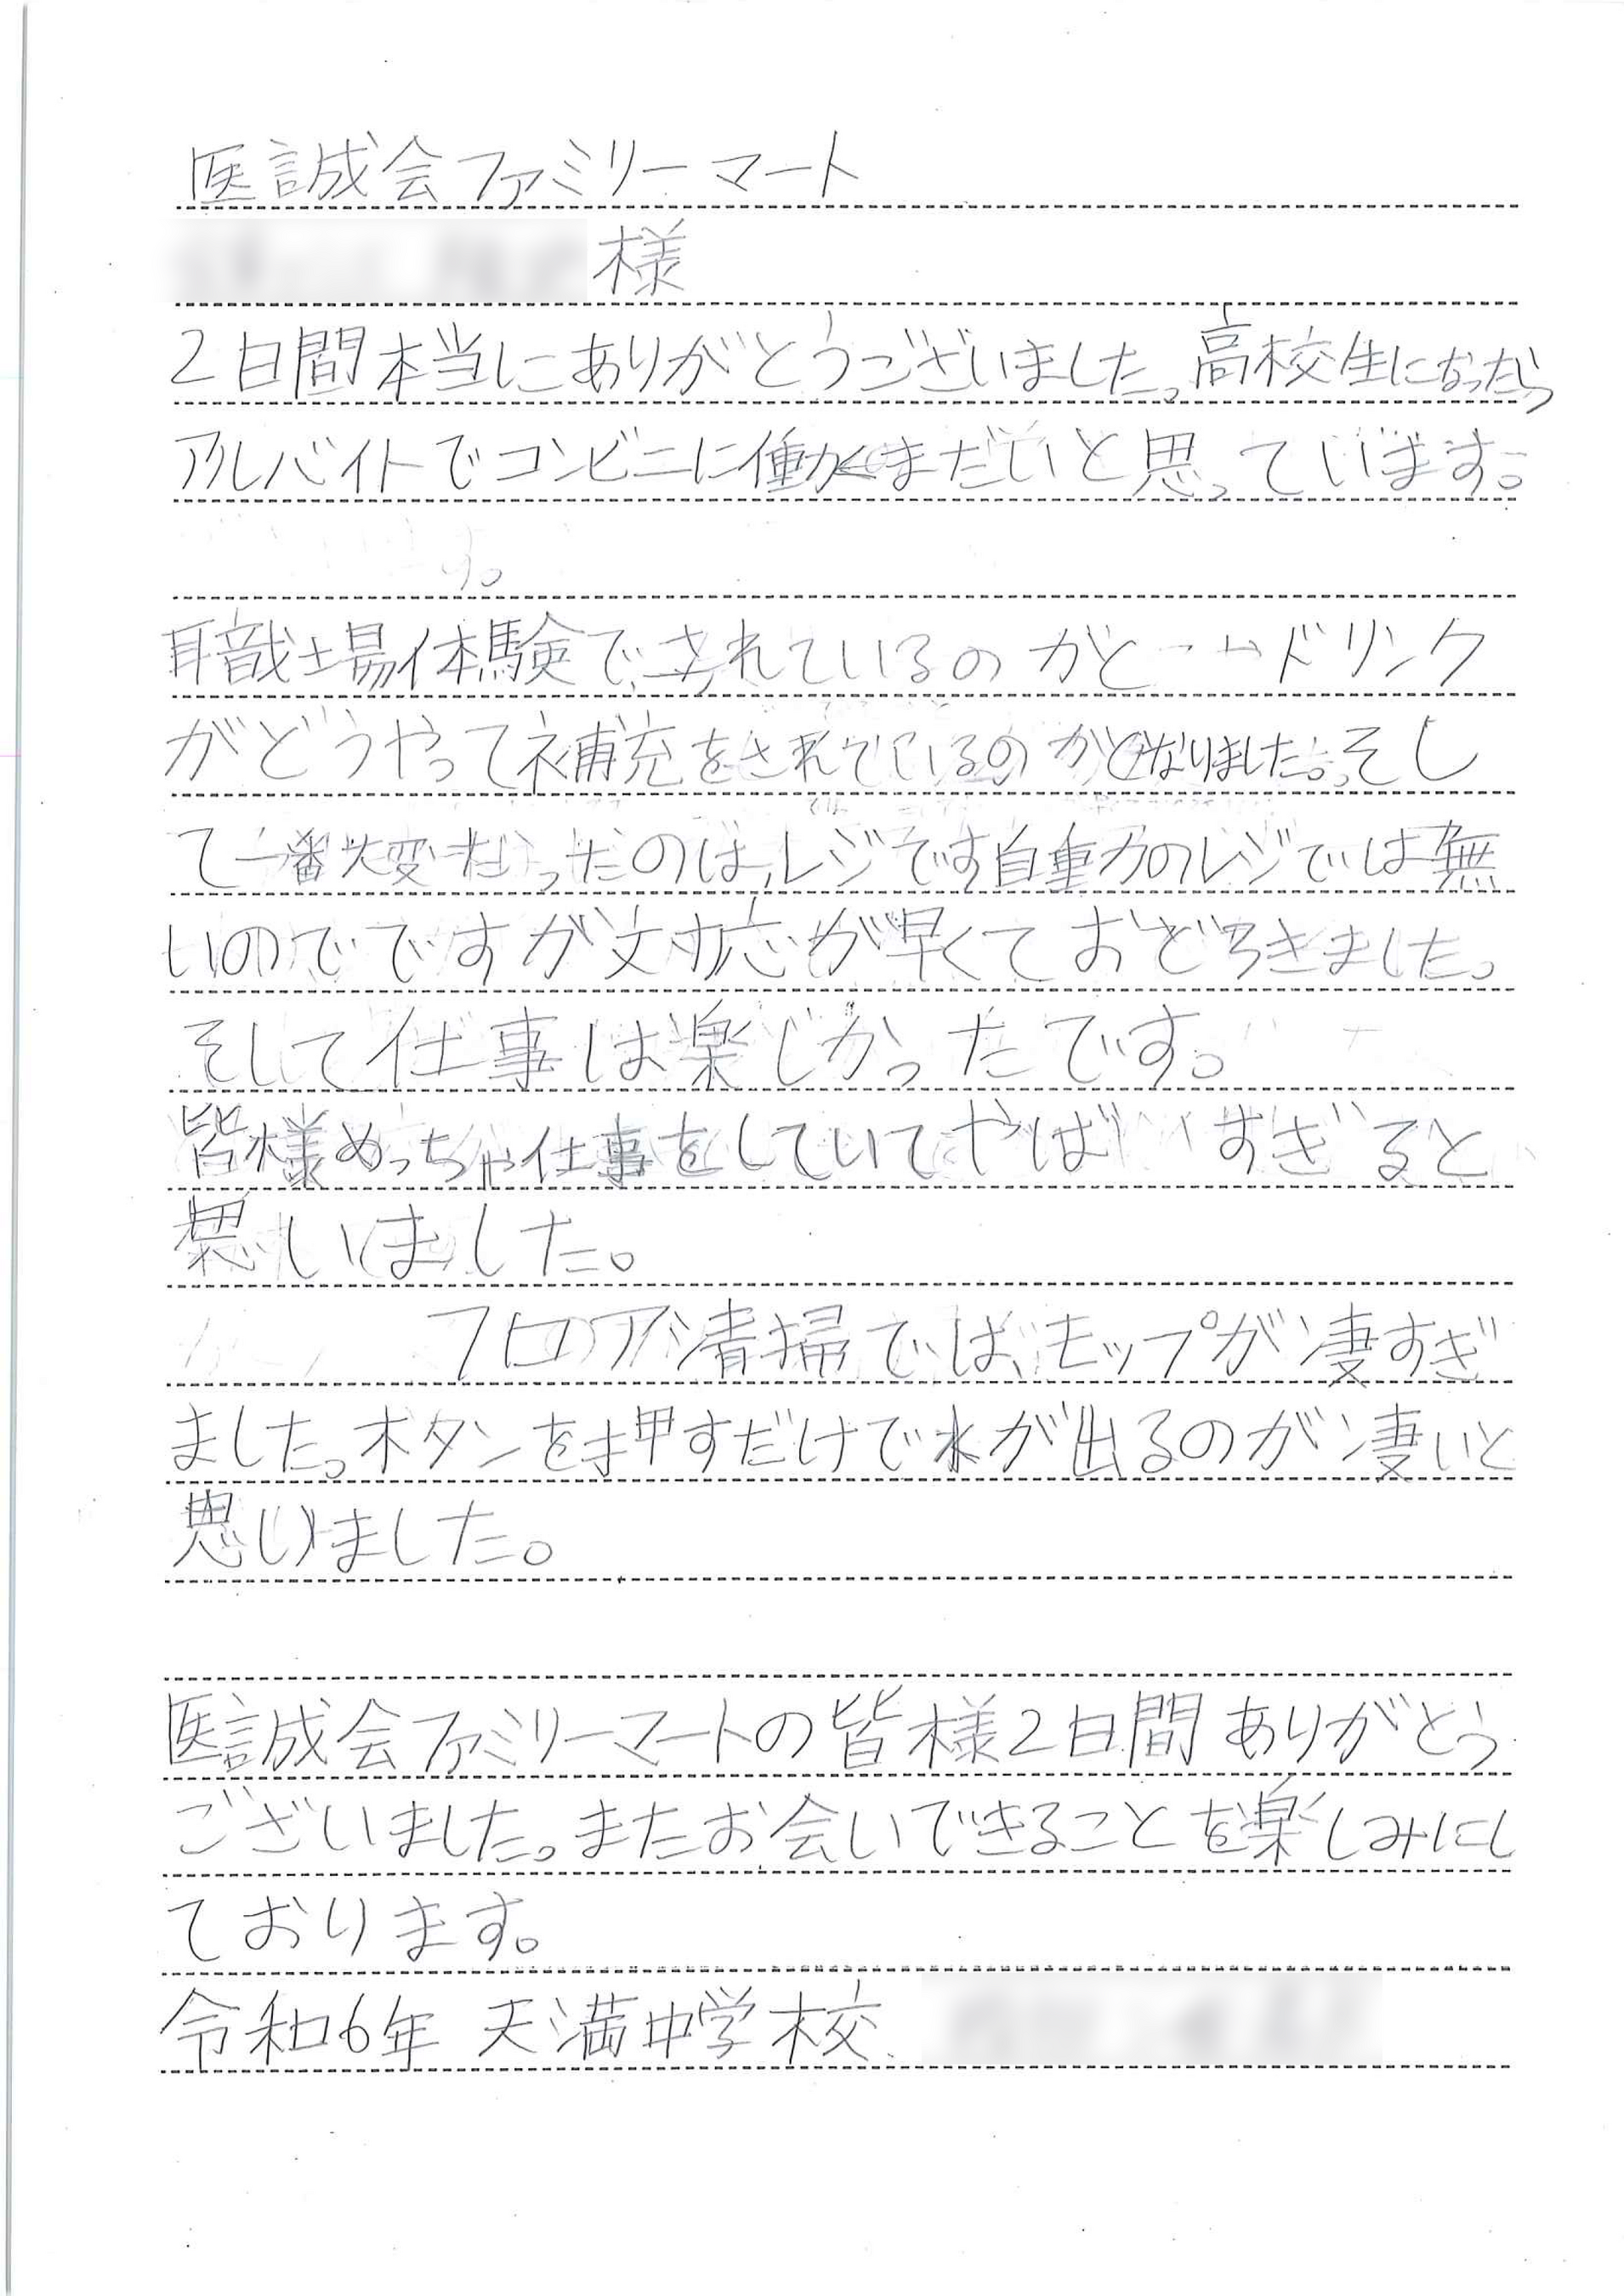 医誠会ファミリーマート
様
2日間本当にありがとうございました。高校生になったら
アルバイトでコンビニに働くまだいと思っています。
す。
職場体験で、されているのがと ドリンク
がどうやって補充をされているのかとなりました。そし
て一番大変だったのは、レジです自動のレジでは無
いのでですが対応が早くておどろきました。
そして仕事は楽しかったです。
皆様めっちゃ仕事をしていてやばいすぎると
思いました。
フロア清掃では、モップが凄すぎ
ました。ボタンを押すだけで水が出るのが凄いと
思いました。
医誠会ファミリーマートの皆様2日間ありがとう
ございました。またお会いできることを楽しみにし
ております。
令和6年 天満中学校